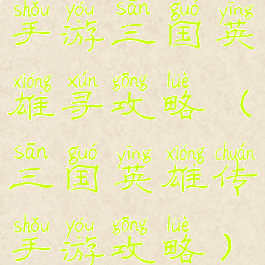 shǒu yóu sān guó yīng
手游三国英
xióng xún gōng lüè
雄寻攻略（
sān guó yīng xióng chuán
三国英雄传
shǒu yóu gōng lüè
手游攻略）